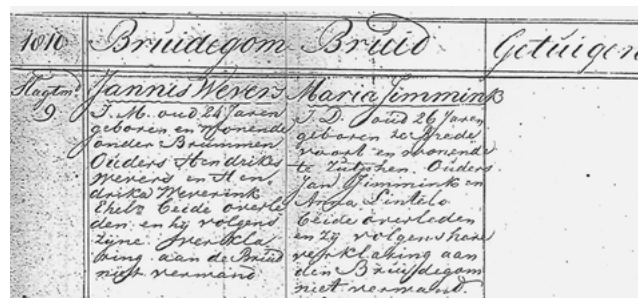 1810
Bruidegom
Bruid
Getuigen
Slagtmd
9
Jannis Wevers
J. M. oud 24 Jaren
geboren en wonende
onder Brummen
Ouders Hendrikes
Wevers en Hen
drika Weverink
Ehels beide overle
den en hij volgens
zijne verkla
ring aan de Bruid
niet vermand
Maria Jimmink
J. D. oud 26 Jaren
geboren te Brede
voort en wonende
te Zutphen. Ouders
Jan Jimmink en
Anna Lintelo
beide overleden
en zij volgens hare
verklaring aan
den Bruidegom
niet vermand.